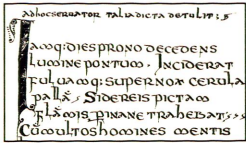 adhoc seruator talia dicta detulit:;
Iamq: dies prono decedens
lumine pontum. Inciderat
fuluamq: super nox cerula
palla; Sidereis pictam
flamis per inane trahebat;
Cu multos homines mentis